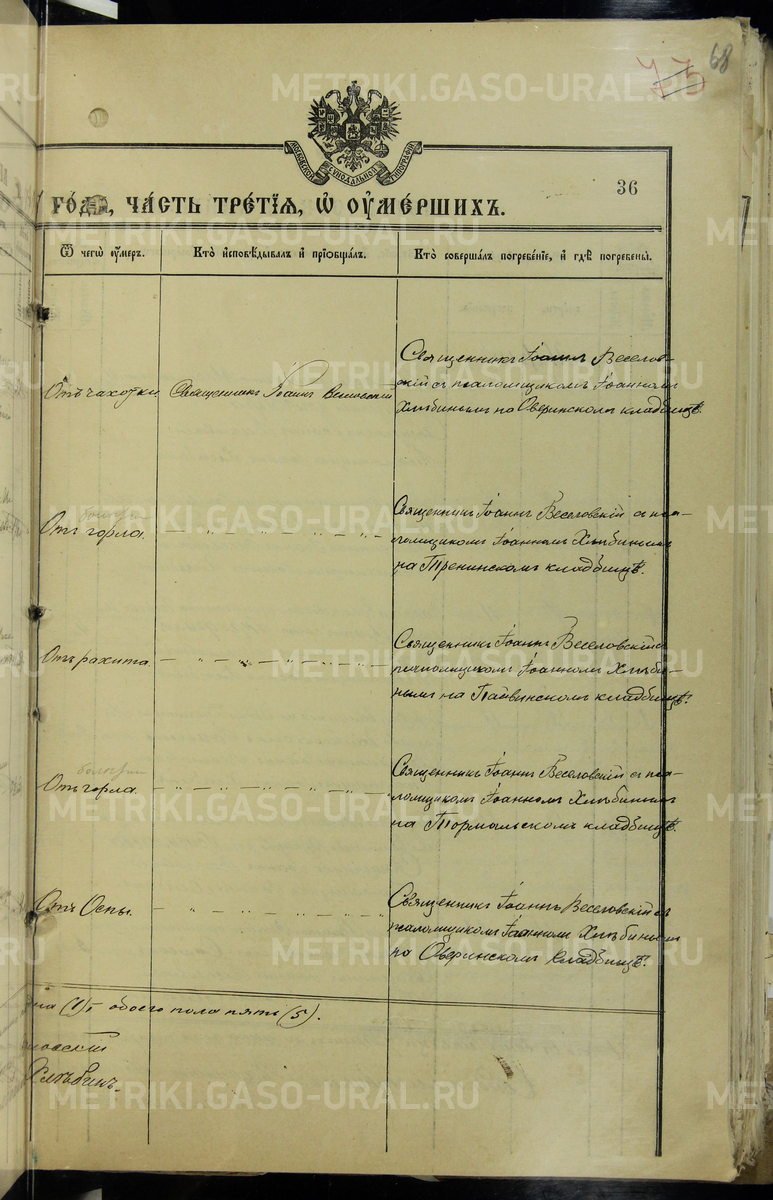 68
75
МОСКОВСКОЙ СѴНОДАЛЬНОЙ ТИПОГРАФІИ
36
го́да, ча́сть тре́тїѧ, ѡ҆ ᲂу҆ме́ршихъ.
Ѿ чегѡ̀ ᲂу҆́меръ.
Кто̀ и҆сповѣ́дывалъ и҆ прїѡбща́лъ.
Кто̀ соверша́лъ погребе́нїе, и҆ гдѣ̀ погребены̀.
Отъ чахотки
Священникъ Іоаннъ Веселовскій
Священникъ Іоаннъ Веселов-
скій съ псаломщикомъ Іоанномъ
Хлѣбинымъ на Оверинскомъ кладбищѣ.
болезни
Отъ горла.
— „ — „ — „ — „ —
Священникъ Іоаннъ Веселовскій съ пса-
ломщикомъ Іоанномъ Хлѣбинымъ
на Тренинскомъ кладбищѣ.
Отъ рахита
— „ — „ — „ — „ —
Священникъ Іоаннъ Веселовскій съ
псаломщикомъ Іоанномъ Хлѣби-
нымъ на кладбищѣ.
болезни
Отъ горла.
— „ — „ — „ — „ —
Священникъ Іоаннъ Веселовскій съ пса-
ломщикомъ Іоанномъ Хлѣбинымъ
на Тормольскомъ кладбищѣ.
Отъ Оспы.
— „ — „ — „ — „ —
Священникъ Іоаннъ Веселовскій съ
псаломщикомъ Іоанномъ Хлѣбинымъ
на Оверинскомъ кладбищѣ.
на (1) обоего пола пять (5).
ловскій
Хлѣбинъ.
METRIKI.GASO-URAL.RU